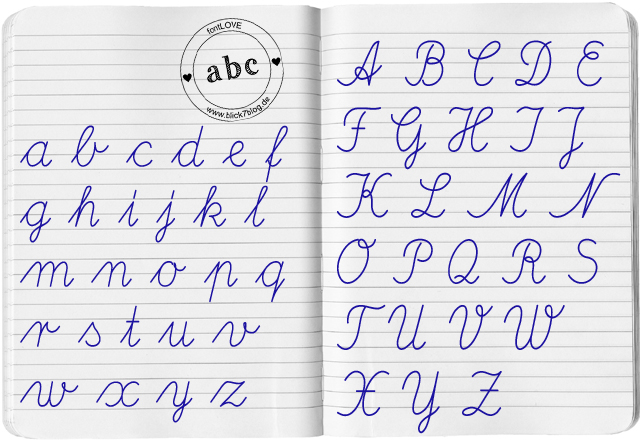 fontLOVE
abc
www.blick7blog.de
a b c d e f
g h i j k l
m n o p q
r s t u v
w x y z
A B C D E
F G H I J
K L M N
O P Q R S
T U V W
X Y Z